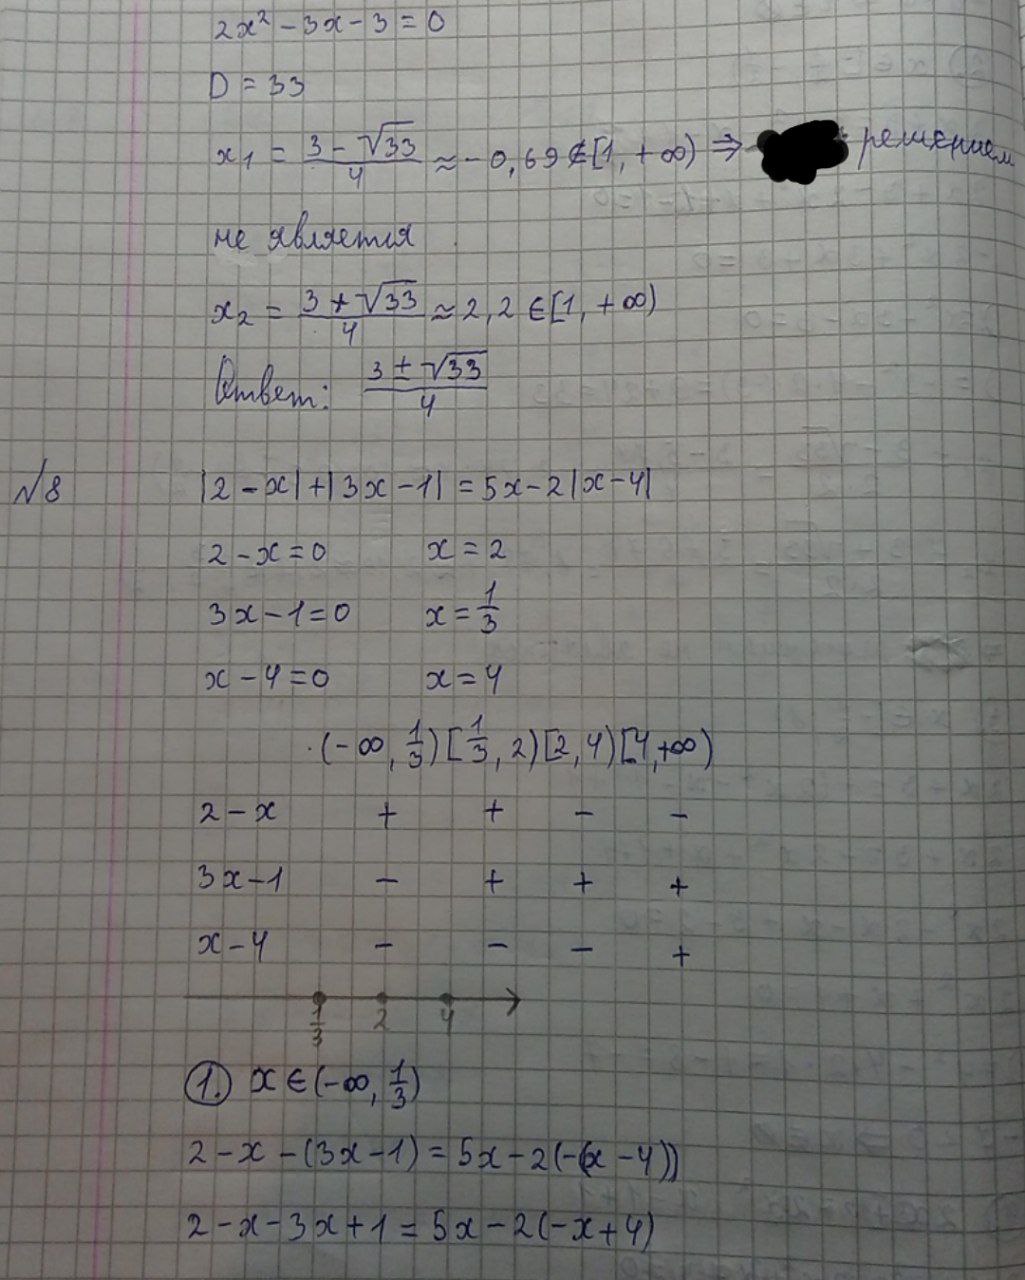 2x² - 3x - 3 = 0
D = 33
x₁ = (3 - √33)/4 ≈ -0,69 ∉ [1, +∞) ⇒ решением
не является
x₂ = (3 + √33)/4 ≈ 2,2 ∈ [1, +∞)
Ответ: (3 ± √33)/4
№8 |2 - x| + |3x - 1| = 5x - 2|x - 4|
2 - x = 0 x = 2
3x - 1 = 0 x = 1/3
x - 4 = 0 x = 4
(-∞, 1/3) [1/3, 2) [2, 4) [4, +∞)
2 - x + + - -
3x - 1 - + + +
x - 4 - - - +
1/3 2 4
1. x ∈ (-∞, 1/3)
2 - x - (3x - 1) = 5x - 2(-(x - 4))
2 - x - 3x + 1 = 5x - 2(-x + 4)